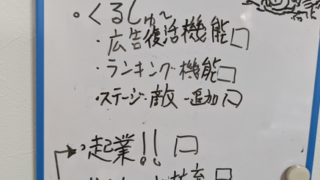 。くるしゅ〜
・広告復活機能□
・ランキング機能□
・ステージ・敵・追加□
・起業!! □